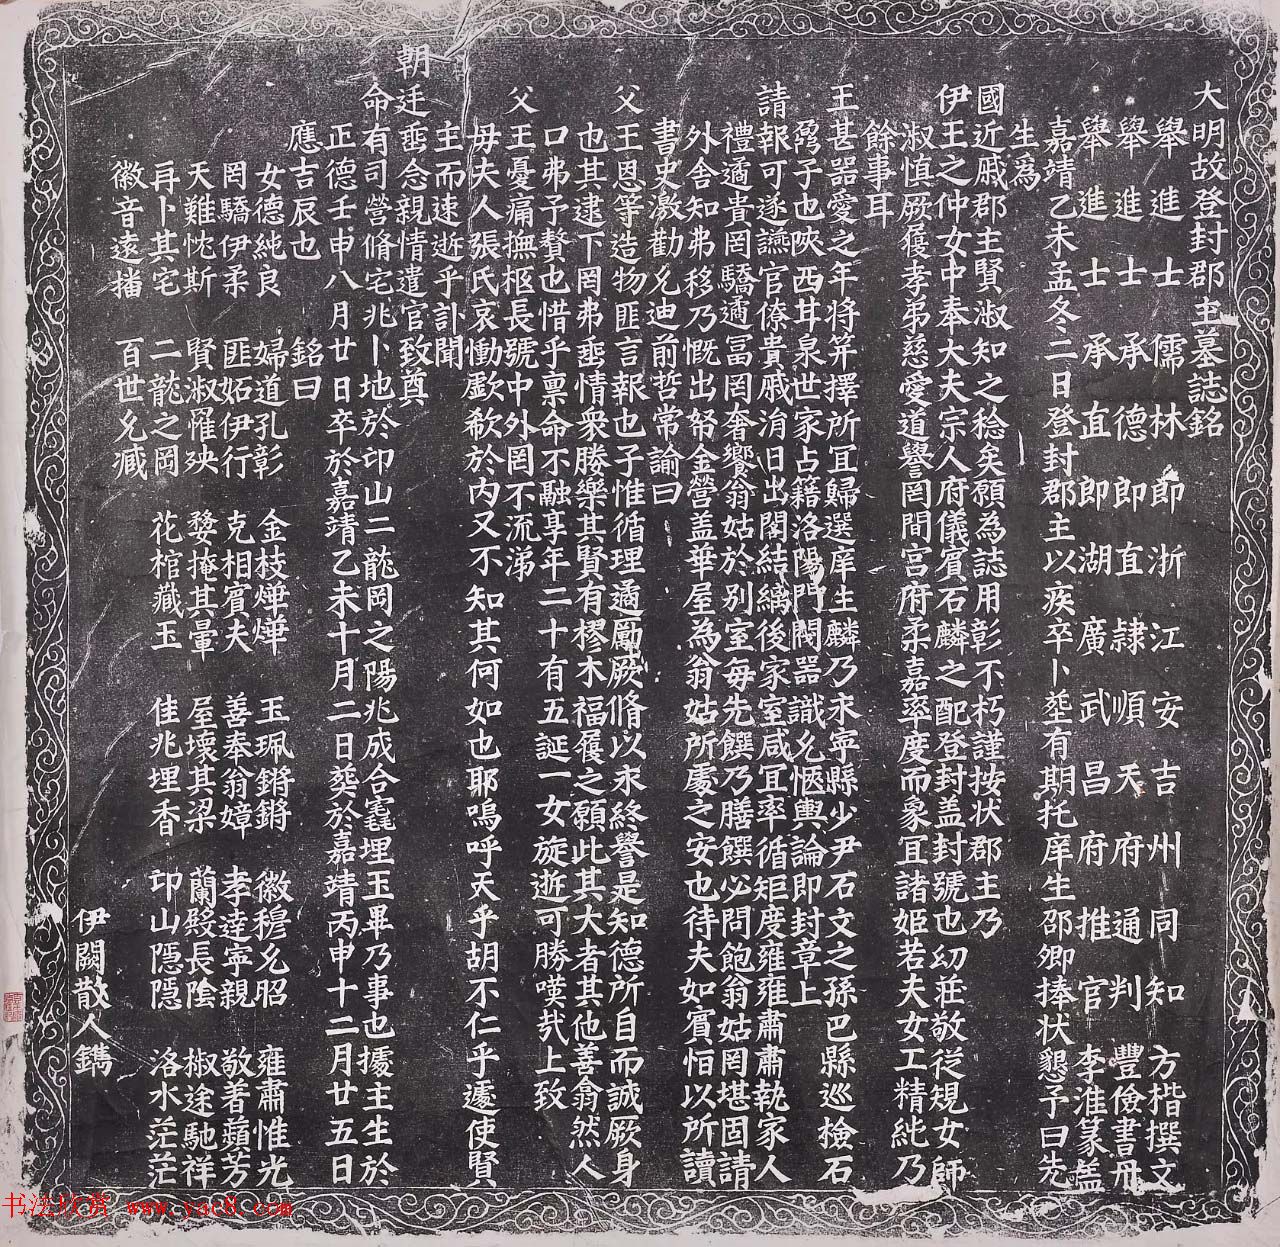 大明故登封郡主墓誌銘
舉進士儒林郎浙江安吉州同知方楷撰文
舉進士承德郎直隸順天府通判豐儉書丹
舉進士承直郎湖廣武昌府推官李淮篆盖
嘉靖乙未孟冬二日登封郡主以疾卒卜塟有期托庠生邵卿捧状懇予曰先
生爲
國近戚郡主賢淑知之稔矣願為誌用彰不朽謹按状郡主乃
伊王之仲女中奉大夫宗人府儀賓石麟之配登封盖封號也幼莊敬従規女師
淑慎厥履孝弟慈愛道譽罔間宮府柔嘉率度而象宜諸姬若夫女工精純乃
餘事耳
王甚器愛之年将笄擇所宜歸選庠生麟乃永寧縣少尹石文之孫巴縣巡檢石
子也陜西甘泉世家占籍洛陽門閥器識允愜輿論即封章上
請報可遂讌官僚貴戚涓日出閣結縭後家室咸宜率循矩度雍雍肅肅執家人
禮遹貴罔驕遹冨罔奢饗翁姑於别室每先饌乃膳饌必問飽翁姑罔堪固請
外舍知弗移乃慨出帑金營盖華屋為翁姑所處之安也待夫如賓恒以所讀
書史激勸允迪前哲常諭曰
父王恩等造物匪言報也子惟循理遹勵厥脩以永終譽是知德所自而誠厥身
也其逮下罔弗垂情衆媵樂其賢有樛木福履之願此其大者其他善翁然人
口弗予贅也惜乎禀命不融享年二十有五誕一女旋逝可勝嘆哉上致
父王憂痛撫柩長號中外罔不流涕
毋夫人張氏哀慟歔欷於内又不知其何如也耶嗚呼天乎胡不仁乎遽使賢
主而速逝乎訃聞
朝廷垂念親情遣官致奠
命有司營脩宅兆卜地於邙山二龍岡之陽兆成合窀埋玉畢乃事也據主生於
正德壬申八月廿日卒於嘉靖乙未十月二日葬於嘉靖丙申十二月廿五日
應吉辰也　銘曰
女德純良　婦道孔彰　金枝燁燁　玉珮鏘鏘　徽穆允昭　雍肅惟光
罔驕伊柔　匪妬伊行　克相賓夫　善奉翁嫜　孝逹寧親　敬著蘋芳
天難忱斯　賢淑罹殃　婺掩其暈　屋壞其梁　蘭殿長陰　椒途馳祥
再卜其宅　二龍之岡　花棺藏玉　佳兆埋香　邙山隱隱　洛水茫茫
徽音遠播　百世允臧
伊闕散人鐫
书法欣赏 www.yac8.com